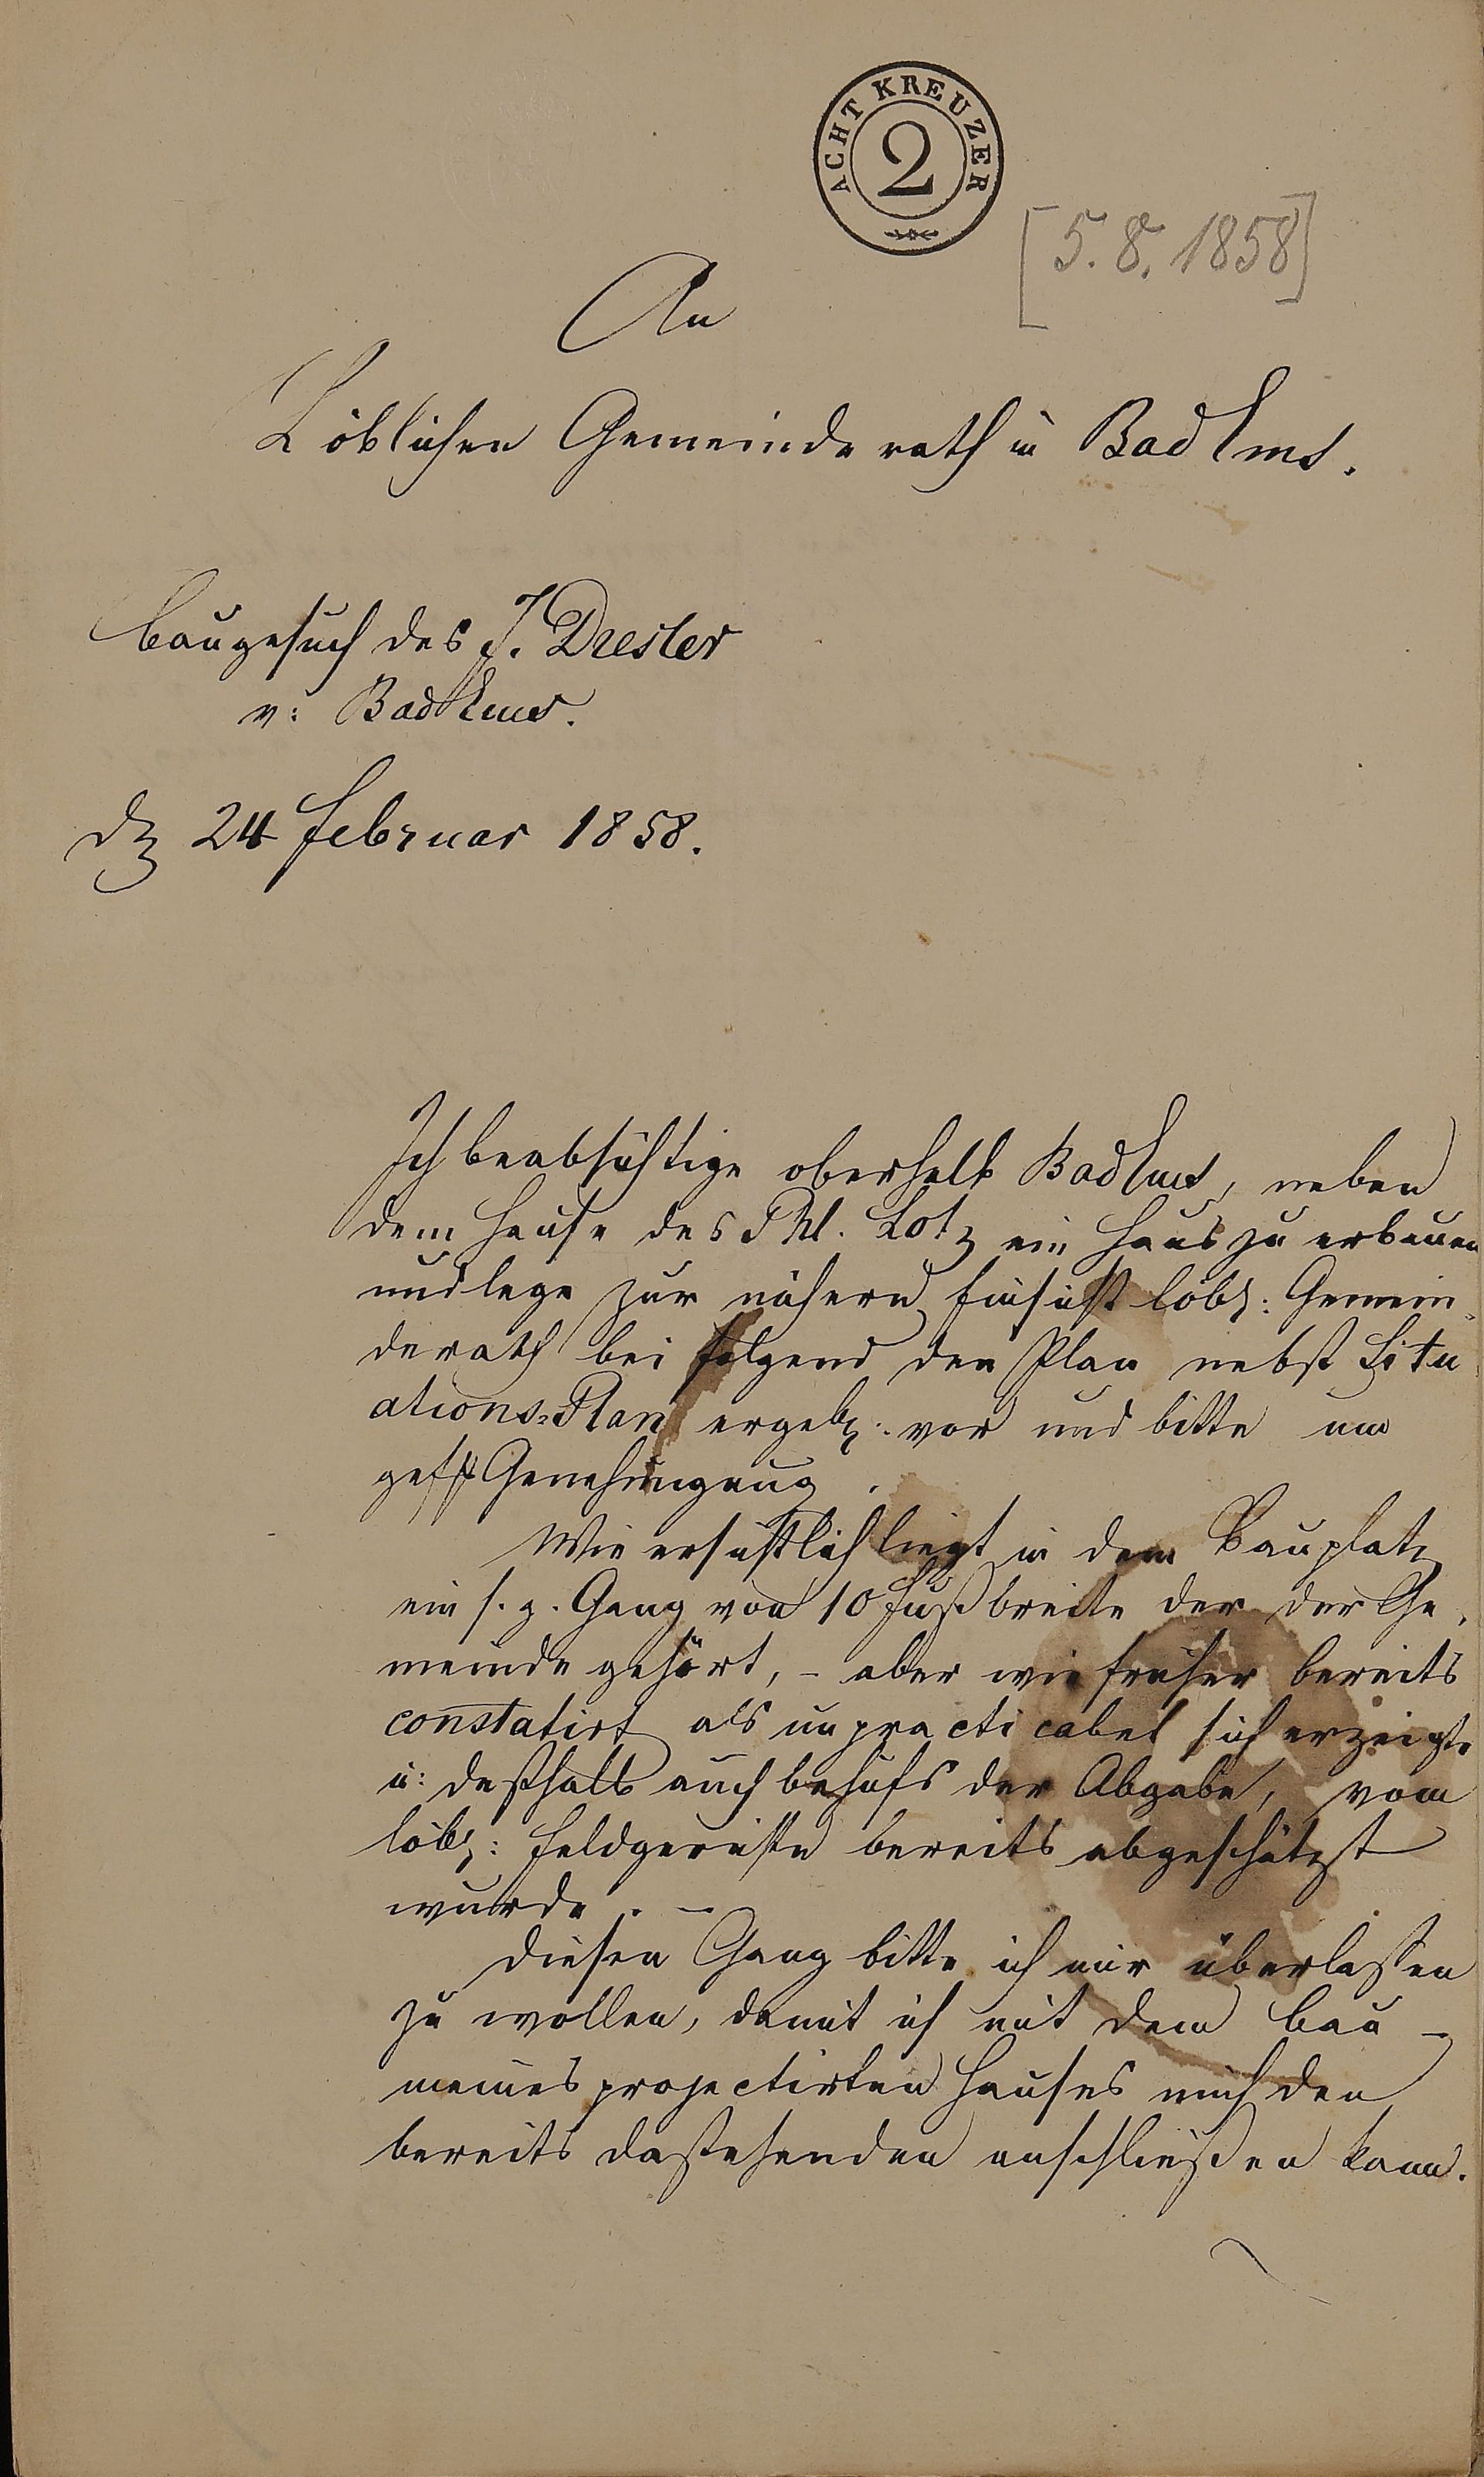 ACHT KREUZER
2
[5.8.1858]
An
Löblichen Gemeinderath in Bad Ems.
Baugesuch des J. Dresler
v: Bad Ems.
dz 24 Februar 1858.
Ich beabsichtige oberhalb Bad Ems, neben
dem Hause des Phl. Lotz ein Haus zu erbauen
und lege zur nähern Einsicht löbl: Gemein-
derath bei folgend den Plan nebst Situ
ations-Plan ergeb: vor und bitte um
geff Genehmigung.
Wie ersichtlich liegt in dem Bauplatz
ein s. g. Gang von 10 Fuß breite der der Ge-
meinde gehört, - aber wie früher bereits
constatirt als unpracticabel sich erzeigte
u: deßhalb auch behufs der Abgabe, vom
löbl: Feldgerichte bereits abgeschätzt
wurde. -
Diesen Gang bitte ich mir überlaßen
zu wollen, damit ich mit dem Bau -
meines projectirten Hauses mich den
bereits dastehenden anschließen kann.